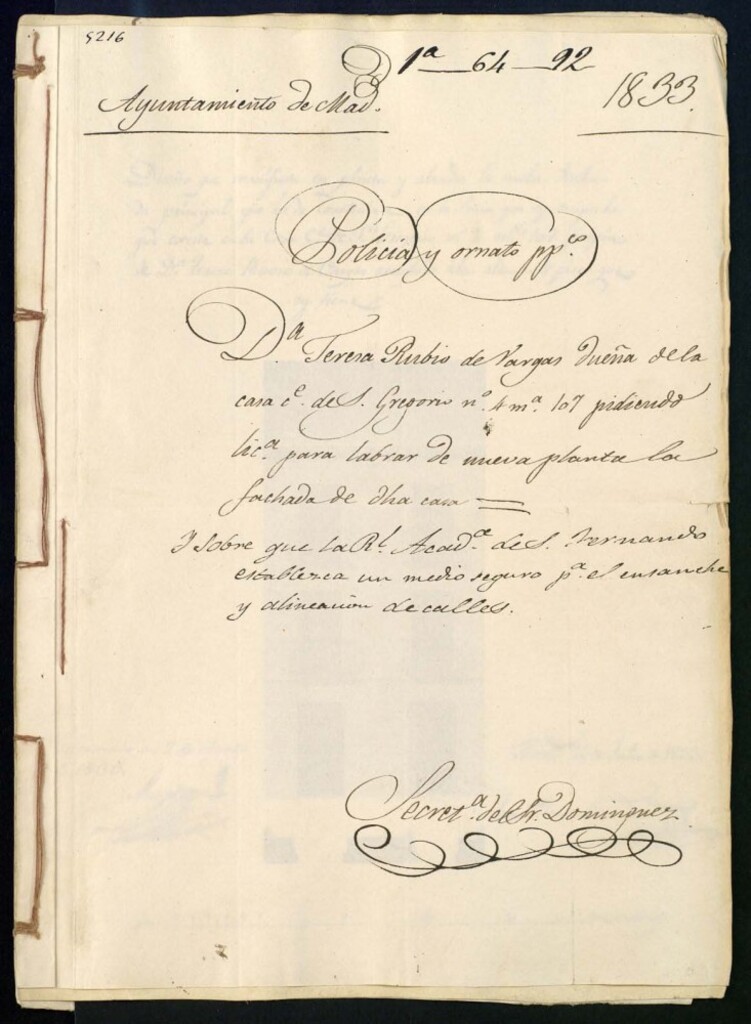 5216
1ª 64 92
Ayuntamiento de Mad.
1833.
Policia y ornato ppᶜᵒ.
D.ª Teresa Rubio de Vargas dueña de la
casa c.ᵉ de S. Gregorio n.º 4 m.ª 107 pidiendo
lic.ª para labrar de nueva planta la
fachada de dha casa =
Y sobre que la R.ˡ Acad.ª de S. Fernando
establezca un medio seguro p.ª el ensanche
y alineacion de calles.
Secret.ª del Sr. Dominguez